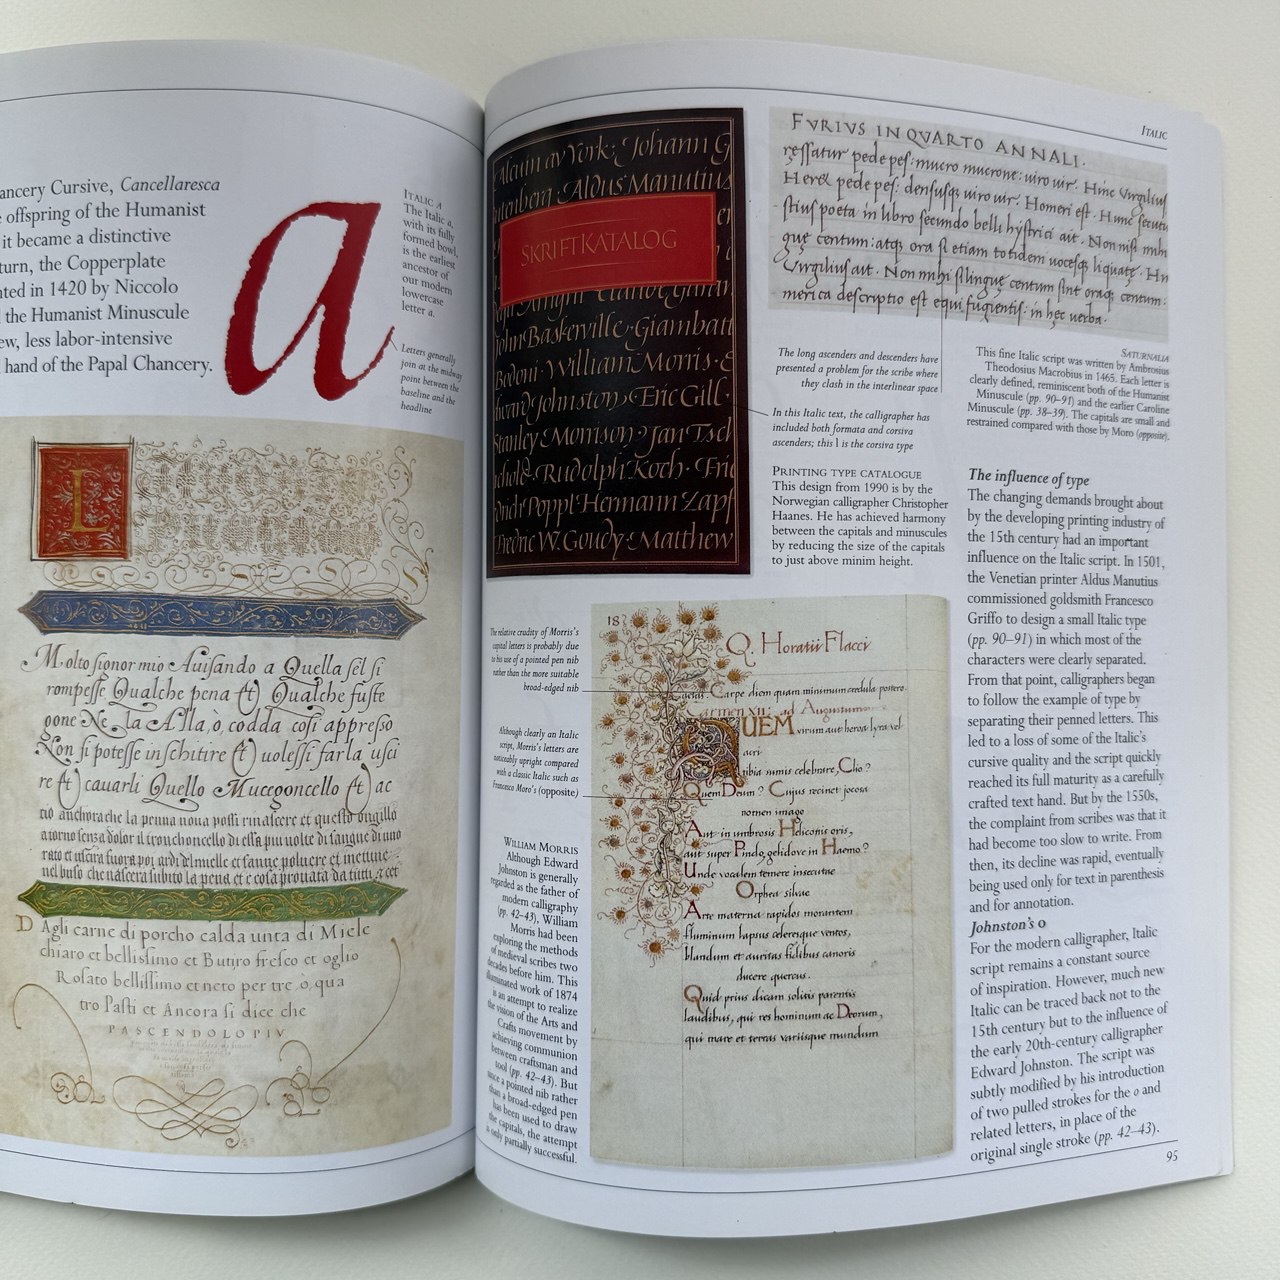 ancery Cursive, Cancellaresca
offspring of the Humanist
it became a distinctive
turn, the Copperplate
nted in 1420 by Niccolo
the Humanist Minuscule
ew, less labor-intensive
hand of the Papal Chancery.
a
ITALIC A
The Italic a,
with its fully
formed bowl,
is the earliest
ancestor of
our modern
lowercase
letter a.
Letters generally
join at the midway
point between the
baseline and the
headline
L
Molto signor mio Auisando a Quella sel si
rompesse Qualche pena et Qualche fuste
gone Ne la Alla, ò codda cosi appresso
Non si potesse inschitire et uolessi farla usci
re et cauarli Quello Muccgoncello et ac
D Agli carne di porcho calda unta di Miele
chiaro et bellissimo et Butiro fresco et oglio
Rosato bellissimo et neto per tre, ò, qua
tro Pasti et Ancora si dice che
PASCENDOLO PIV
ITALIC
Alcuin av York · Johann G
utenberg · Aldus Manutius
SKRIFTKATALOG
John Baskerville · Giambatt
Bodoni · William Morris · E
dward Johnston · Eric Gill ·
Stanley Morrison · Jan Tsch
ichold · Rudolph Koch · Frie
drich Poppl · Hermann Zapf
Fredric W. Goudy · Matthew
FVRIVS IN QVARTO ANNALI.
ressatur pede pes: mucro mucrone: uiro uir. Hinc Virgilius
Hered pede pes: densusq; uiro uir. Homeri est. Hunc secutu
stius poeta in libro secundo belli hystrici ait. Non nisi mihi
gue centum: atq; ora sient totidem uocesq; liquatę. Hn
Virgilius ait. Non mihi si linguę centum sint oraq; centum:
merica descriptio est equi fugientis: in hęc uerba.
The long ascenders and descenders have
presented a problem for the scribe where
they clash in the interlinear space
In this Italic text, the calligrapher has
included both formata and corsiva
ascenders; this l is the corsiva type
PRINTING TYPE CATALOGUE
This design from 1990 is by the
Norwegian calligrapher Christopher
Haanes. He has achieved harmony
between the capitals and minuscules
by reducing the size of the capitals
to just above minim height.
SATURNALIA
This fine Italic script was written by Ambrosius
Theodosius Macrobius in 1465. Each letter is
clearly defined, reminiscent both of the Humanist
Minuscule (pp. 90–91) and the earlier Caroline
Minuscule (pp. 38–39). The capitals are small and
restrained compared with those by Moro (opposite).
The relative crudity of Morris's
capital letters is probably due
to his use of a pointed pen nib
rather than the more suitable
broad-edged nib
Although clearly an Italic
script, Morris's letters are
noticeably upright compared
with a classic Italic such as
Francesco Moro's (opposite)
WILLIAM MORRIS
Although Edward
Johnston is generally
regarded as the father of
modern calligraphy
(pp. 42–43), William
Morris had been
exploring the methods
of medieval scribes two
decades before him. This
illuminated work of 1874
is an attempt to realize
the vision of the Arts and
Crafts movement by
achieving communion
between craftsman and
tool (pp. 42–43). But
since a pointed nib rather
than a broad-edged pen
has been used to draw
the capitals, the attempt
is only partially successful.
18
Q. Horatii Flacci
Carpe diem quam minimum credula postero.
Carmen XII. ad Augustum
QUEM virum aut heroa lyra vel
acri
tibia sumis celebrare, Clio?
Quem Deum? Cujus recinet jocosa
nomen imago
Aut in umbrosis Heliconis oris,
aut super Pindo, gelidove in Haemo?
Unde vocalem temere insecutae
Orphea silvae
Arte materna rapidos morantem
fluminum lapsus celeresque ventos,
blandum et auritas fidibus canoris
ducere quercus.
Quid prius dicam solitis parentis
laudibus, qui res hominum ac Deorum,
qui mare et terras variisque mundum
The influence of type
The changing demands brought about
by the developing printing industry of
the 15th century had an important
influence on the Italic script. In 1501,
the Venetian printer Aldus Manutius
commissioned goldsmith Francesco
Griffo to design a small Italic type
(pp. 90–91) in which most of the
characters were clearly separated.
From that point, calligraphers began
to follow the example of type by
separating their penned letters. This
led to a loss of some of the Italic's
cursive quality and the script quickly
reached its full maturity as a carefully
crafted text hand. But by the 1550s,
the complaint from scribes was that it
had become too slow to write. From
then, its decline was rapid, eventually
being used only for text in parenthesis
and for annotation.
Johnston's o
For the modern calligrapher, Italic
script remains a constant source
of inspiration. However, much new
Italic can be traced back not to the
15th century but to the influence of
the early 20th-century calligrapher
Edward Johnston. The script was
subtly modified by his introduction
of two pulled strokes for the o and
related letters, in place of the
original single stroke (pp. 42–43).
95